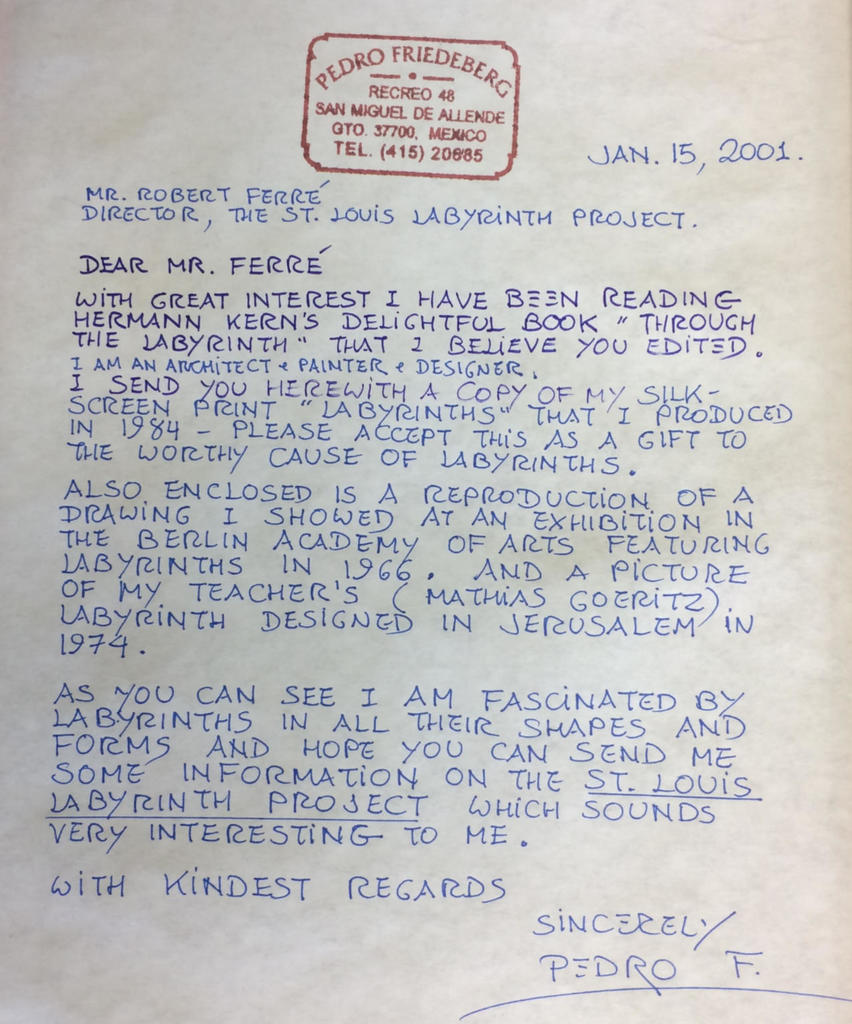 PEDRO FRIEDEBERG
RECREO 48
SAN MIGUEL DE ALLENDE
GTO. 37700, MEXICO
TEL. (415) 20685
JAN. 15, 2001.
MR. ROBERT FERRÉ
DIRECTOR, THE ST. LOUIS LABYRINTH PROJECT.
DEAR MR. FERRÉ
WITH GREAT INTEREST I HAVE BEEN READING
HERMANN KERN'S DELIGHTFUL BOOK "THROUGH
THE LABYRINTH" THAT I BELIEVE YOU EDITED.
I AM AN ARCHITECT & PAINTER & DESIGNER.
I SEND YOU HEREWITH A COPY OF MY SILK-
SCREEN PRINT "LABYRINTHS" THAT I PRODUCED
IN 1984 – PLEASE ACCEPT THIS AS A GIFT TO
THE WORTHY CAUSE OF LABYRINTHS.
ALSO ENCLOSED IS A REPRODUCTION OF A
DRAWING I SHOWED AT AN EXHIBITION IN
THE BERLIN ACADEMY OF ARTS FEATURING
LABYRINTHS IN 1966. AND A PICTURE
OF MY TEACHER'S (MATHIAS GOERITZ)
LABYRINTH DESIGNED IN JERUSALEM IN
1974.
AS YOU CAN SEE I AM FASCINATED BY
LABYRINTHS IN ALL THEIR SHAPES AND
FORMS AND HOPE YOU CAN SEND ME
SOME INFORMATION ON THE ST. LOUIS
LABYRINTH PROJECT WHICH SOUNDS
VERY INTERESTING TO ME.
WITH KINDEST REGARDS
SINCERELY
PEDRO F.